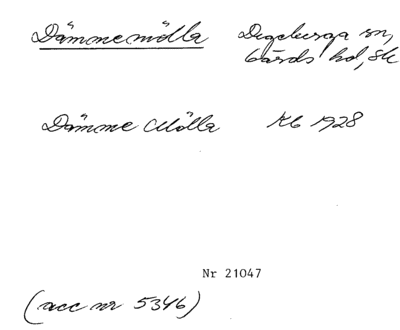 Dämmemölla Degeberga sn,
Gärds hd, Sk
Dämme Mölla Kb 1928
Nr 21047
(acc nr 5346)